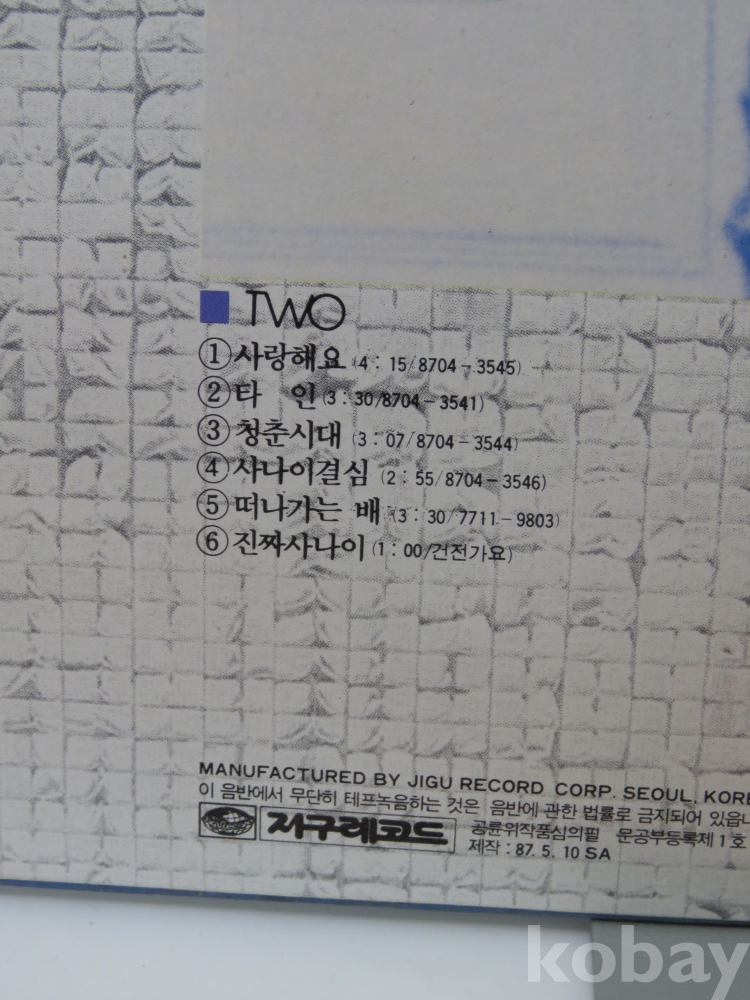 ■ TWO
① 사랑해요 (4 : 15/8704-3545)
② 타 인 (3 : 30/8704-3541)
③ 청춘시대 (3 : 07/8704-3544)
④ 사나이결심 (2 : 55/8704-3546)
⑤ 떠나가는 배 (3 : 30/7711-9803)
⑥ 진짜사나이 (1 : 00/건전가요)
MANUFACTURED BY JIGU RECORD CORP. SEOUL, KORE
이 음반에서 무단히 테프녹음하는 것은 음반에 관한 법률로 금지되어 있읍니
지구레코드
공륜위작품심의필 문공부등록제 1 호
제작 : 87. 5. 10 SA
kobay